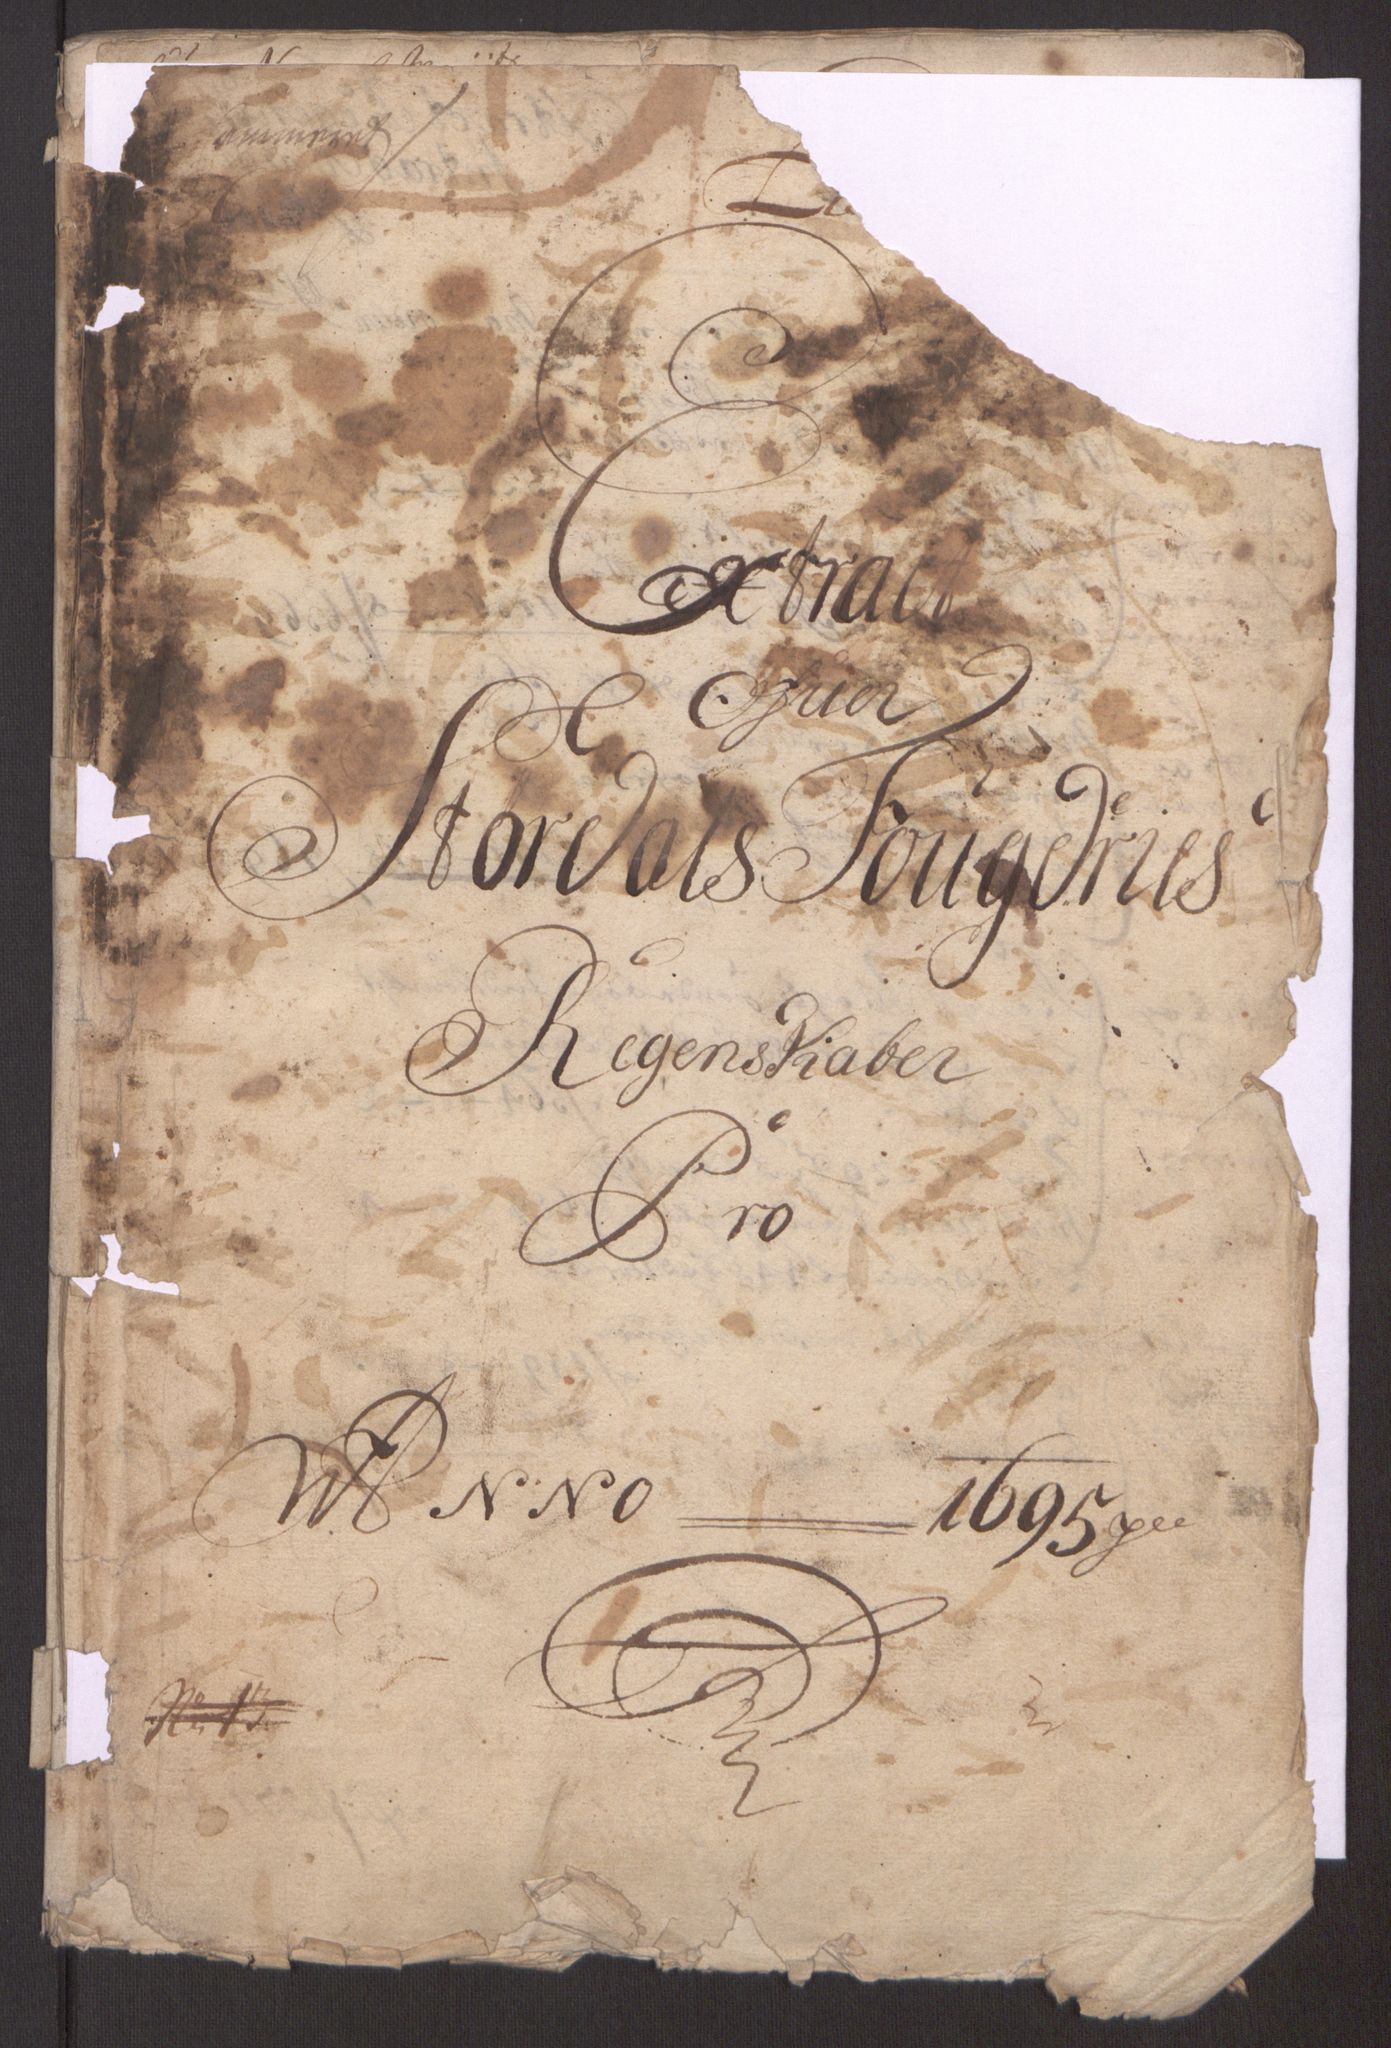 Extract
Ofuer
Stördals Fougderies
Regenskaber
Pro
ANNO 1695
No. 13